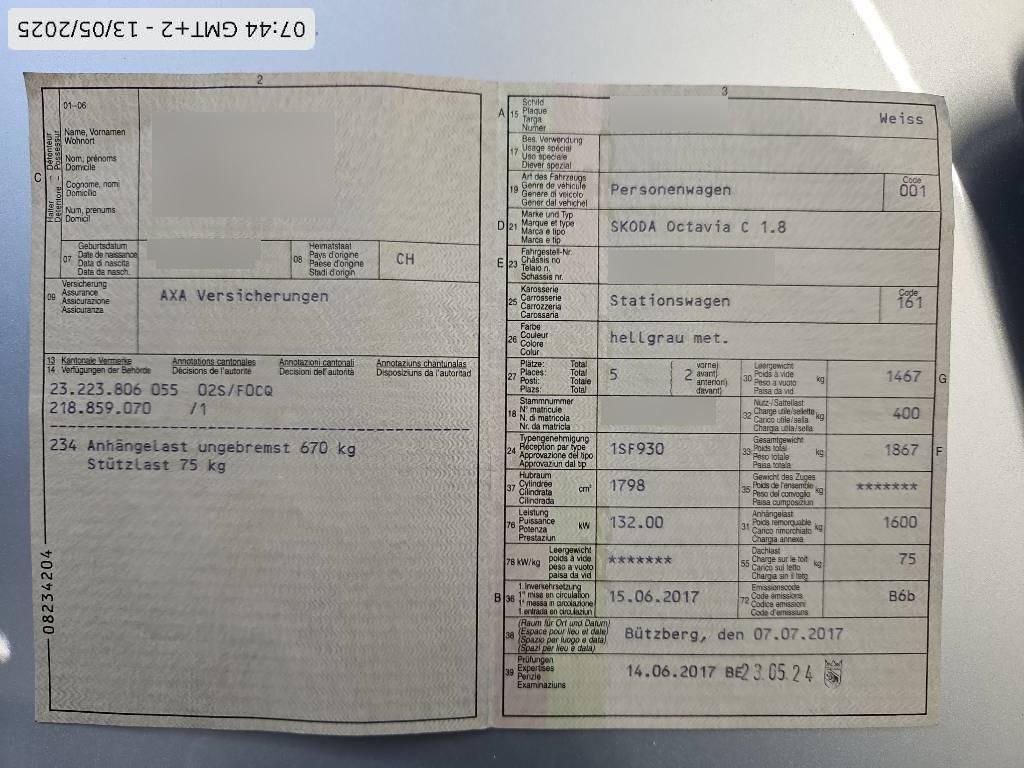 07:44 GMT+2 - 13/05/2025
2
01-06
C
Halter - Détenteur
Detentore - Possessur
Name, Vornamen
Wohnort
Nom, prénoms
Domicile
Cognome, nomi
Domicilio
Num, prenums
Domicil
07
Geburtsdatum
Date de naissance
Data di nascita
Data da nasch.
08
Heimatstaat
Pays d'origine
Paese d'origine
Stadi d'origin
CH
09
Versicherung
Assurance
Assicurazione
Assicuranza
AXA Versicherungen
13 Kantonale Vermerke Annotations cantonales Annotazioni cantonali Annotaziuns chantunalas
14 Verfügungen der Behörde Décisions de l'autorité Decisioni dell'autorità Disposiziuns da l'autoritad
23.223.806 055 02S/FOCQ
218.859.070 /1
234 Anhängelast ungebremst 670 kg
Stützlast 75 kg
08234204
3
A 15
Schild
Plaque
Targa
Numer
Weiss
17
Bes. Verwendung
Usage spécial
Uso speciale
Diever spezial
19
Art des Fahrzeugs
Genre de véhicule
Genere di veicolo
Gener dal vehichel
Personenwagen
Code
001
D 21
Marke und Typ
Marque et type
Marca e tipo
Marca e tip
SKODA Octavia C 1.8
E 23
Fahrgestell-Nr.
Châssis no
Telaio n.
Schassis nr.
25
Karosserie
Carrosserie
Carrozzeria
Carossaria
Stationswagen
Code
161
26
Farbe
Couleur
Colore
Colur
hellgrau met.
27
Plätze: Total
Places: Total
Posti: Totale
Plazs: Total
5
2
vorne)
avant)
anteriori)
davant)
30
Leergewicht
Poids à vide
Peso a vuoto
Paisa da vid
kg
1467
G
18
Stammnummer
N° matricule
N. di matricola
Nr. da matricla
32
Nutz-/Sattellast
Charge utile/sellette
Carico utile/sella
Chargia utila/sella
kg
400
24
Typengenehmigung
Réception par type
Approvazione del tipo
Approvaziun dal tip
1SF930
33
Gesamtgewicht
Poids total
Peso totale
Paisa totala
kg
1867
F
37
Hubraum
Cylindrée
Cilindrata
Cilindrada
cm³
1798
35
Gewicht des Zuges
Poids de l'ensemble
Peso del convoglio
Paisa cumposiziun
kg
*******
76
Leistung
Puissance
Potenza
Prestaziun
kW
132.00
31
Anhängelast
Poids remorquable
Carico rimorchiato
Chargia annexa
kg
1600
78 kW/kg
Leergewicht
poids à vide
peso a vuoto
paisa da vid
*******
55
Dachlast
Charge sur le toit
Carico sul tetto
Chargia sin il tetg
kg
75
B 36
1. Inverkehrsetzung
1re mise en circulation
1a messa in circolazione
1. entrada en circulaziun
15.06.2017
72
Emissionscode
Code émissions
Codice emissioni
Code d'emissiuns
B6b
38
(Raum für Ort und Datum)
(Espace pour lieu et date)
(Spazio per luogo e data)
(Spazi per lieu e data)
Bützberg, den 07.07.2017
39
Prüfungen
Expertises
Perizie
Examinaziuns
14.06.2017 BE 23.05.24